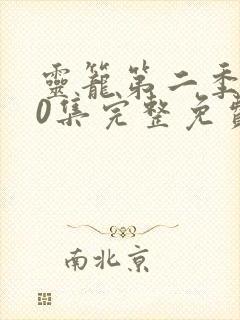 靈籠第二季
0集完整免費
南北京